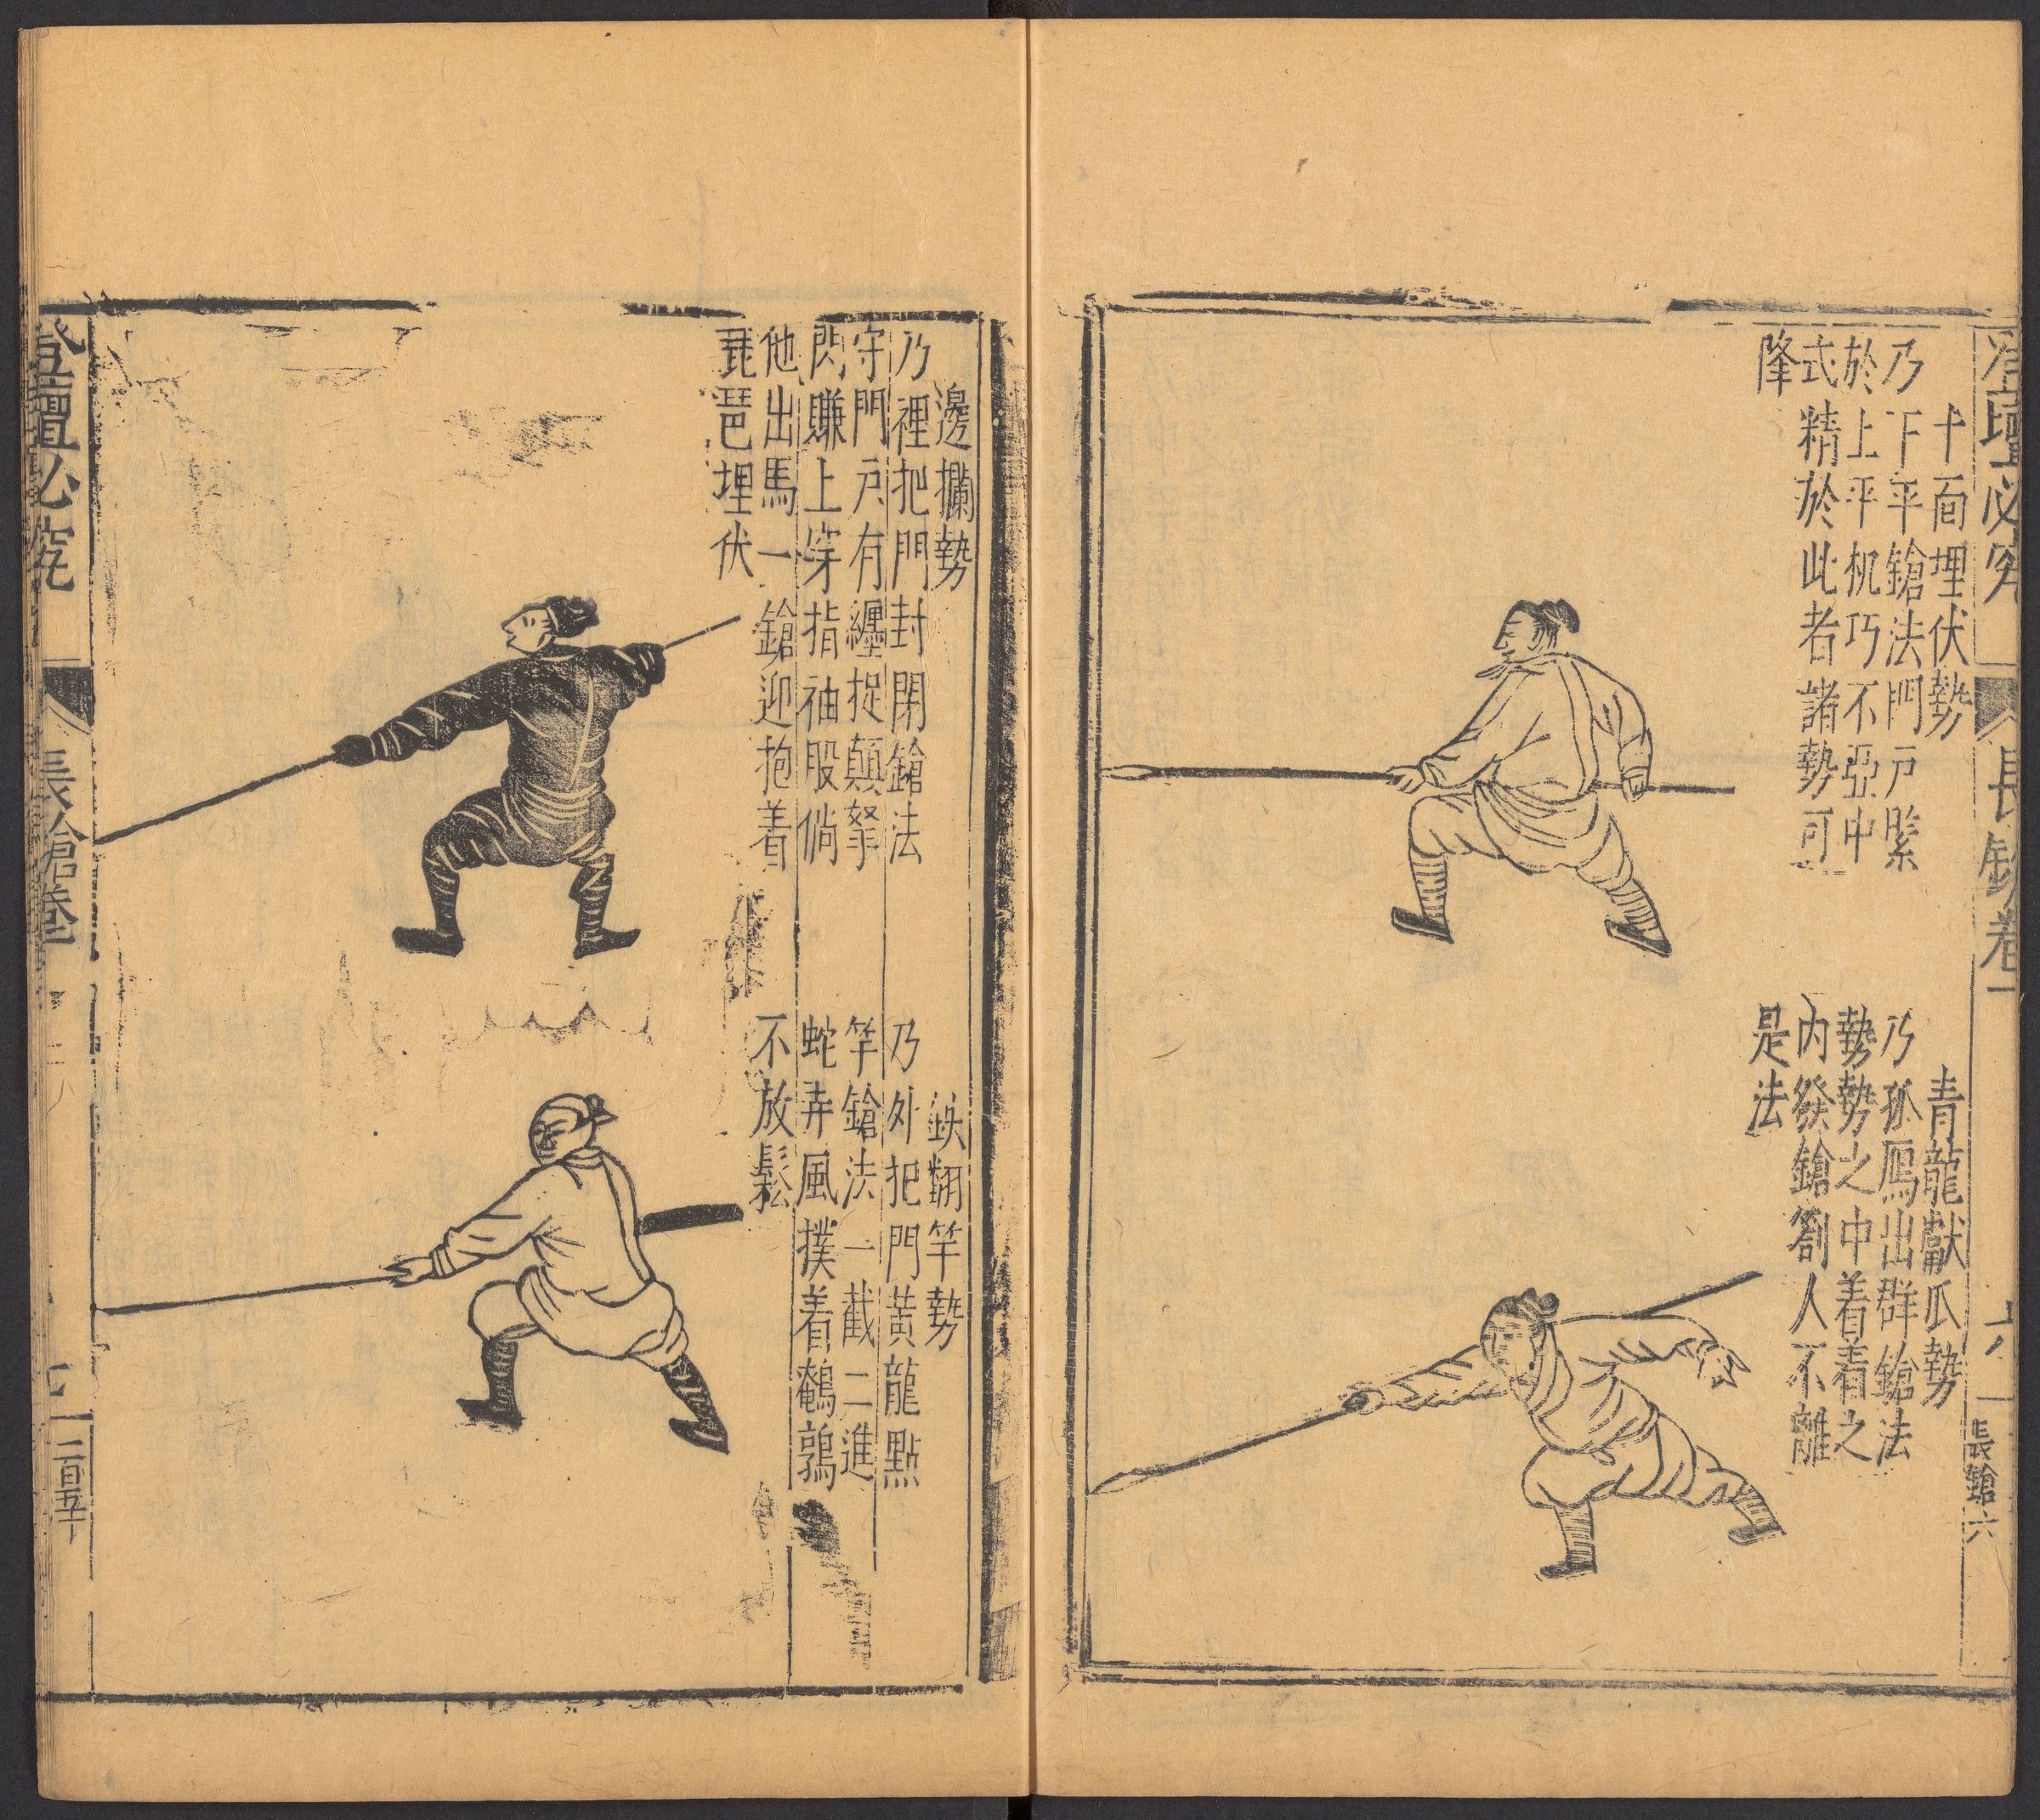 登壇必究
長鎗卷一
六
長鎗六
十面埋伏勢
乃下平鎗法門戸緊
於上平机巧不亞中
式精於此者諸勢可
降
青龍獻爪勢
乃孤鴈出群鎗法
勢勢之中着着之
内發鎗劄人不離
是法
邊攔勢
乃裡把門封閉鎗法
守門戸有纏捉顛拏
閃賺上穿指袖股倘
他出馬一鎗迎抱着
琵琶埋伏
鉄翻竿勢
乃外把門黄龍㸃
竿鎗法一截二進
蛇弄風撲着鵪鶉
不放鬆
登壇必究
長鎗卷